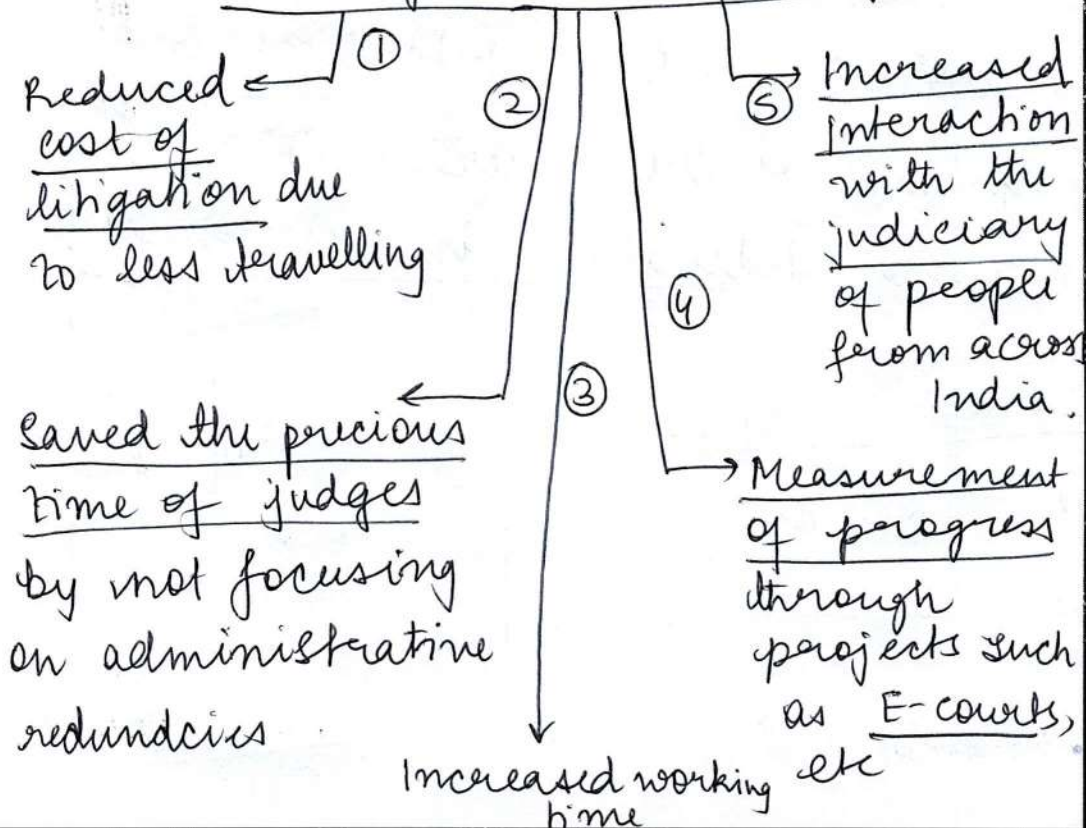 ①
Reduced
cost of
litigation due
to less travelling
②
Saved the precious
time of judges
by not focusing
on administrative
redundcies
③
Increased working
time
④
Measurement
of progress
through
projects such
as E-courts,
etc
⑤
Increased
interaction
with the
judiciary
of people
from across
India.